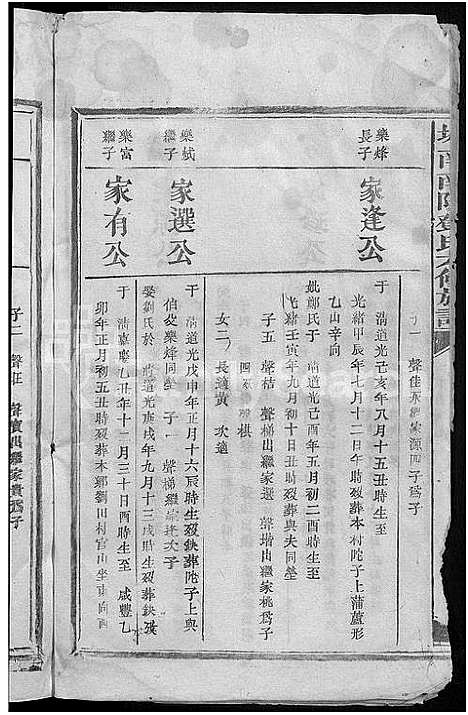 子一　聲佳承繼家源四子爲子
樂烽長子
家逢公
于　清道光己亥年八月十五丑時生至
光緒甲辰年七月十二日午時歿葬本村陀子上蒲蘆形
乙山辛向
妣鄭氏于　清道光己酉年五月初二酉時生至
光緒壬寅年九月初十日丑時歿葬與夫同塋
子五　聲桔　聲梯出繼家選　聲增出繼家桃爲子
四　棋
女二　長適黃　次適
樂斌繼子
家選公
于　清道光戊申年正月十六辰時生歿葬陀子上與
伯父樂烽同塋　子一　聲梯繼家逢次子
娶劉氏於　清道光庚戌年九月十三戌時生歿葬
樂富繼子
家有公
于　清嘉慶乙丑年十一月三十日酉時生至　咸豐乙
卯年正月初五丑時歿葬本鄉劉田村官山坐東向西
子二　聲旺　聲寶四繼家貴爲子
南陽鄧氏六修族譜